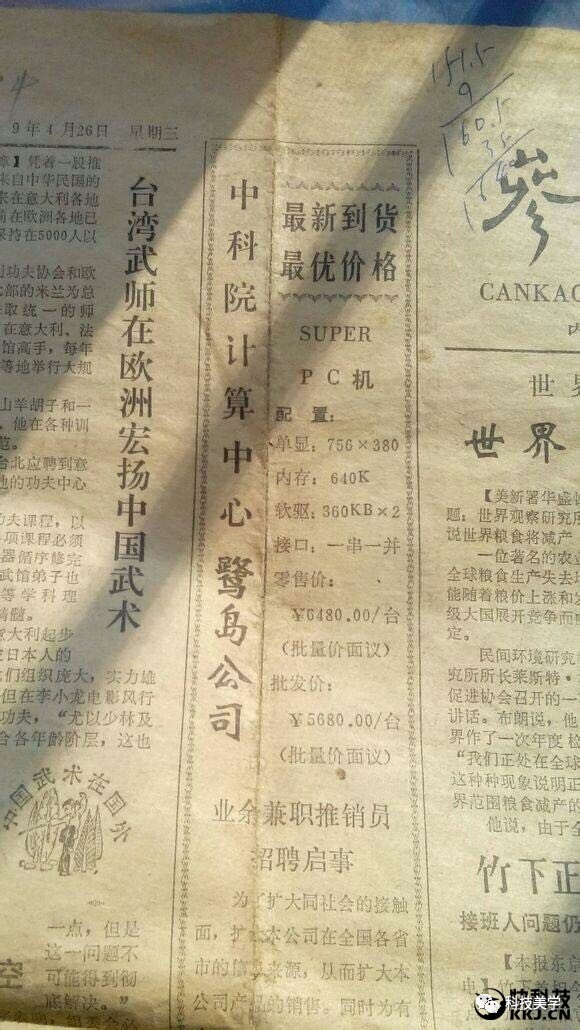 9年4月26日 星期三
】凭着一股推
来自中华民国的
来在意大利各地
前在欧洲各地已
保持在5000人以
功夫协会和欧
部的米兰为总
取统一的师
在意大利、法
馆高手，每年
等地举行大规
山羊胡子和一
，他在各种训
范。
台北应聘到意
他的功夫中心
功夫课程，以
项课程必须
器循序修完
武馆弟子也
等学科理
精髓。
意大利起步
定日本人的
们组织庞大，实力雄
但在李小龙电影风行
功夫，“尤以少林及
合各年龄阶层，这也
台湾武师在欧洲宏扬中国武术
中国武术在国外
一点，但是
这一问题不
可能得到彻
底解决。”
空
中科院计算中心鹭岛公司
最新到货
最优价格
SUPER
PC机
配置：
单显：756×380
内存：640K
软驱：360KB×2
接口：一串一并
零售价：
¥6480.00/台
(批量价面议)
批发价：
¥5680.00/台
(批量价面议)
业余兼职推销员
招聘启事
为了扩大同社会的接触
面，扩大本公司在全国各省
市的信息来源，从而扩大本
公司产品的销售。同时为有
151.5
9
160.5
参
CANKAO
内
世界
世界
【美新署华盛顿
题：世界观察研究所
说世界粮食将减产
一位著名的农业
全球粮食生产失去
能随着粮价上涨和
级大国展开竞争而
定。
民间环境研究
究所所长莱斯特·
促进协会召开的一
讲话。布朗说，他
界作了一次年度检
“我们正处在全球
这种种现象说明正
界范围粮食减产的
他说，由于全
竹下正
接班人问题仍
【本报东京
电】竹下首相
快科技
KKJ.CN
科技美学